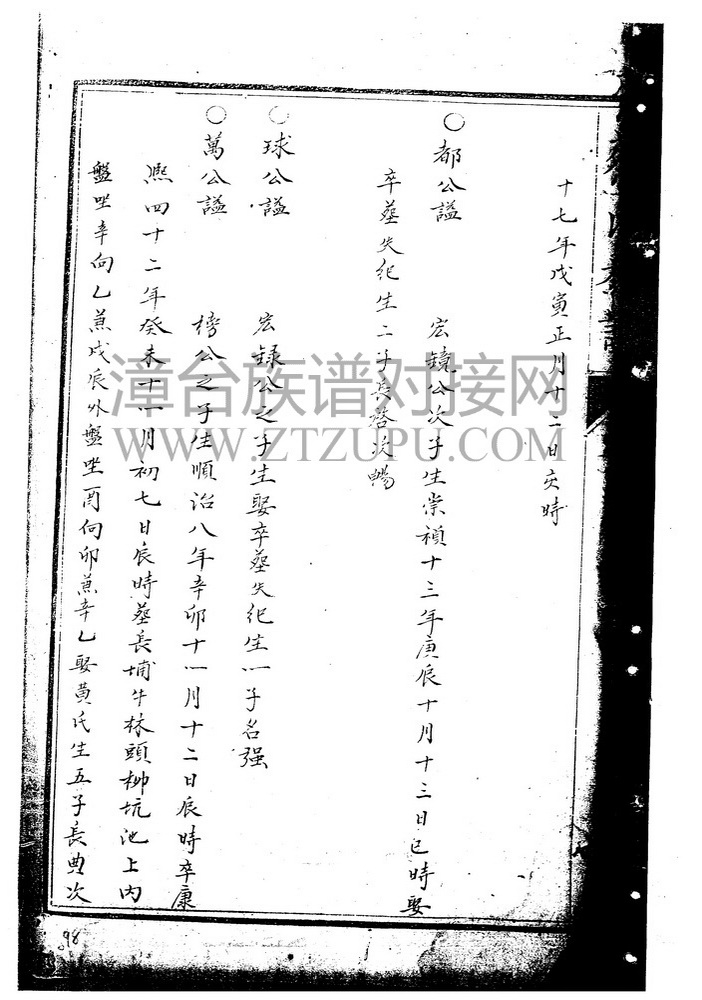 十七年戊寅正月十二日亥時
○都公諡 宏鏡公次子生崇禎十三年庚辰十月十三日巳時娶
卒墓失紀生二子長啓次暢
○球公諡 宏錄公之子生娶卒墓失紀生一子名强
○萬公諡 榜公之子生順治八年辛卯十一月十二日辰時卒康
熙四十二年癸未十一月初七日辰時墓長埔牛林頭柳坑池上內
盤坐辛向乙兼戌辰外盤坐酉向卯兼辛乙娶黃氏生五子長典次
漳台族谱对接网
WWW.ZTZUPU.COM
98